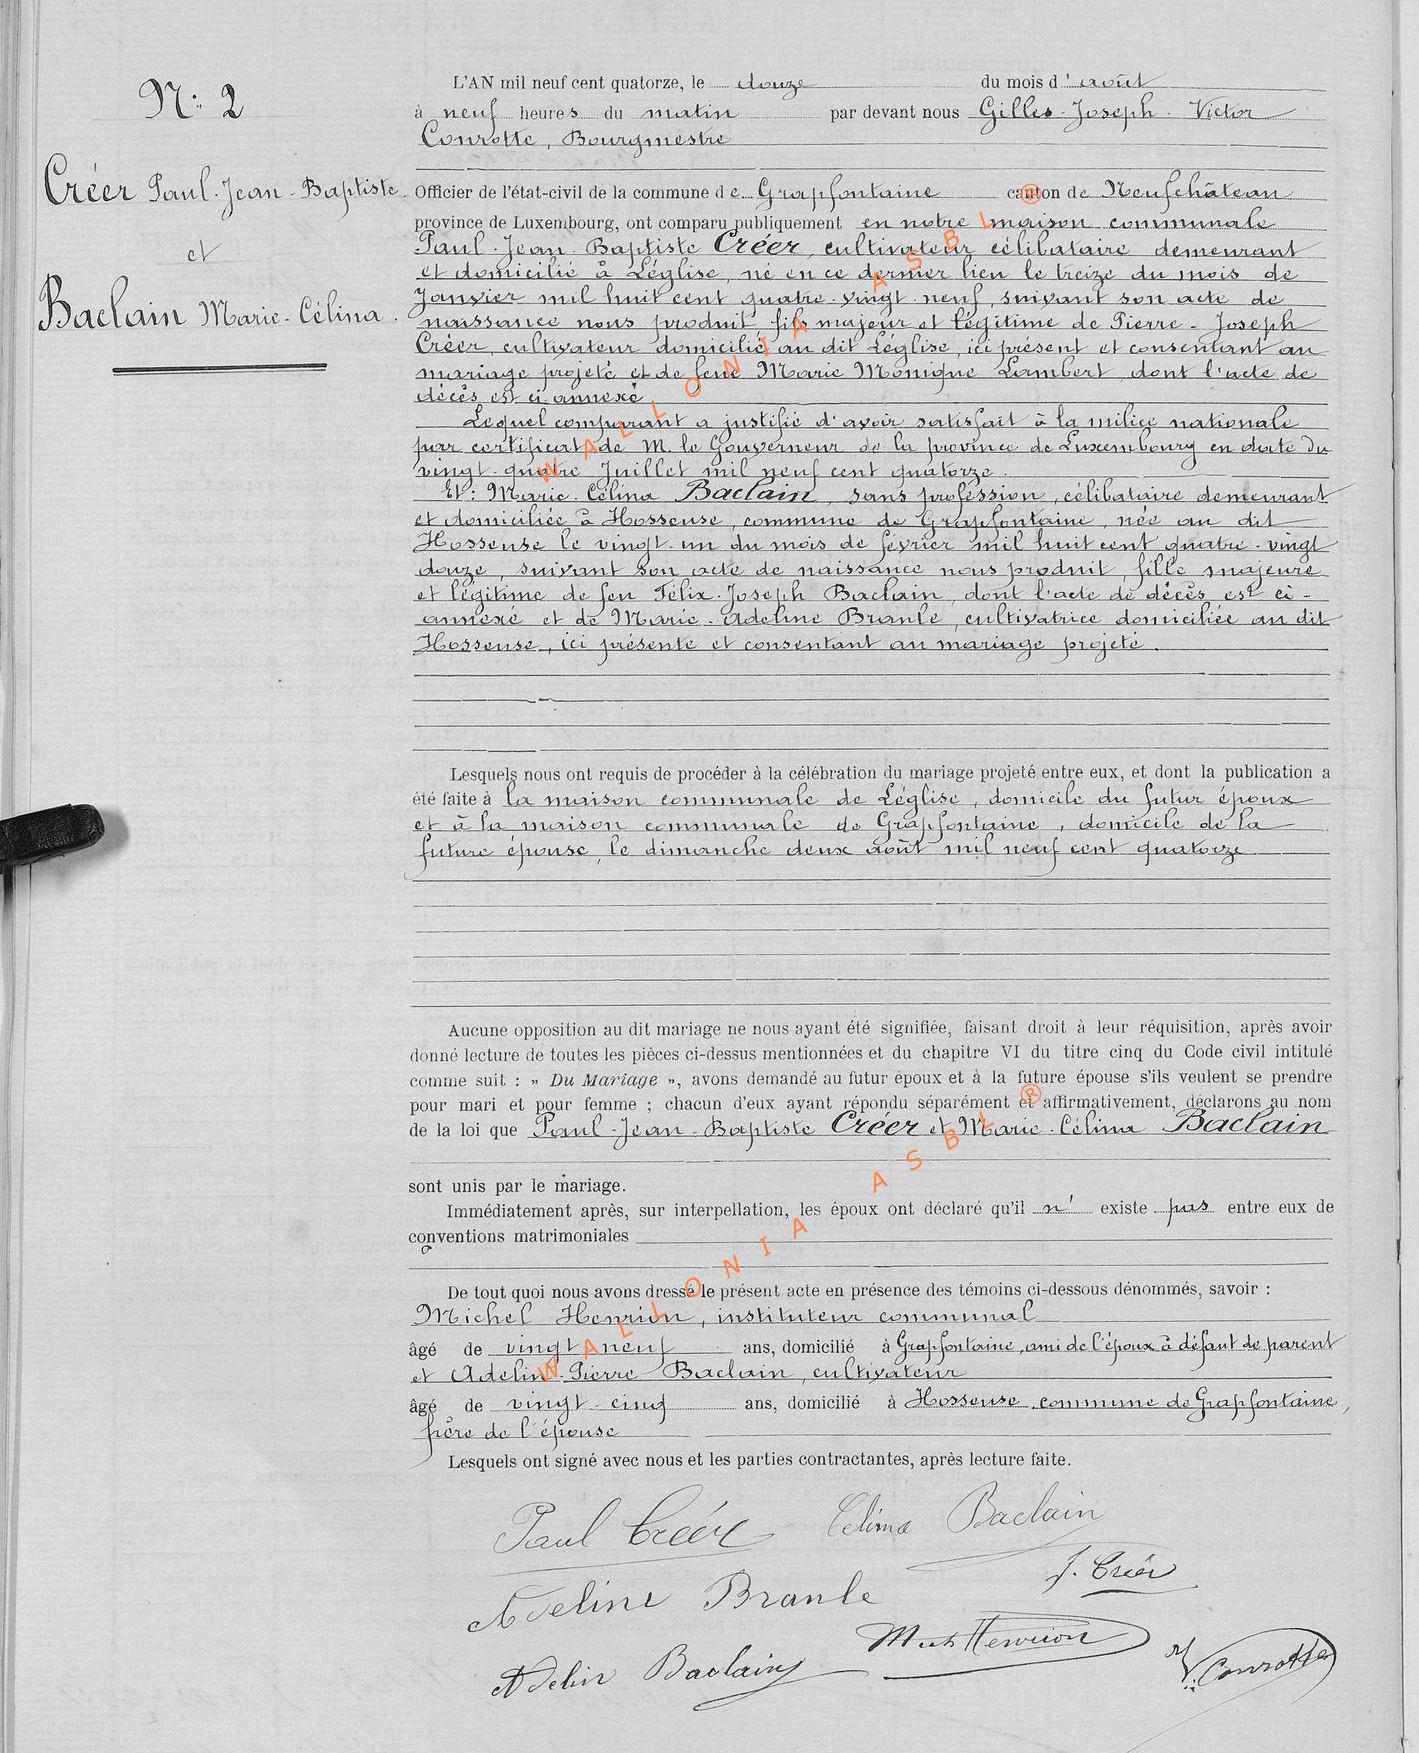 N: 2
Créer Paul-Jean-Baptiste.
et
Baclain Marie-Célina.
L'AN mil neuf cent quatorze, le douze du mois d'août
à neuf heures du matin par devant nous Gilles-Joseph-Victor
Conrotte, Bourgmestre
Officier de l'état-civil de la commune de Grapfontaine canton de Neufchâteau
province de Luxembourg, ont comparu publiquement en notre maison communale
Paul-Jean-Baptiste Créer, cultivateur célibataire demeurant
et domicilié à Léglise, né en ce dernier lieu le treize du mois de
Janvier mil huit cent quatre-vingt-neuf, suivant son acte de
naissance nous produit, fils majeur et légitime de Pierre-Joseph
Créer, cultivateur domicilié au dit Léglise, ici présent et consentant au
mariage projeté et de feue Marie Monique Lambert dont l'acte de
décès est ci annexé.
Lequel comparant a justifié d'avoir satisfait à la milice nationale
par certificat de M. le Gouverneur de la province de Luxembourg en date du
vingt-quatre Juillet mil neuf cent quatorze.
Et: Marie-Célina Baclain, sans profession, célibataire demeurant
et domiciliée à Hosseuse, commune de Grapfontaine, née au dit
Hosseuse le vingt-un du mois de février mil huit cent quatre-vingt
douze, suivant son acte de naissance nous produit, fille majeure
et légitime de feu Félix-Joseph Baclain, dont l'acte de décès est ci-
annexé et de Marie-Adeline Branle, cultivatrice domiciliée au dit
Hosseuse, ici présente et consentant au mariage projeté.
Lesquels nous ont requis de procéder à la célébration du mariage projeté entre eux, et dont la publication a
été faite à la maison communale de Léglise, domicile du futur époux
et à la maison communale de Grapfontaine, domicile de la
future épouse, le dimanche deux août mil neuf cent quatorze
Aucune opposition au dit mariage ne nous ayant été signifiée, faisant droit à leur réquisition, après avoir
donné lecture de toutes les pièces ci-dessus mentionnées et du chapitre VI du titre cinq du Code civil intitulé
comme suit : » Du Mariage », avons demandé au futur époux et à la future épouse s'ils veulent se prendre
pour mari et pour femme ; chacun d'eux ayant répondu séparément et affirmativement, déclarons au nom
de la loi que Paul-Jean-Baptiste Créer et Marie-Célina Baclain
sont unis par le mariage.
Immédiatement après, sur interpellation, les époux ont déclaré qu'il n' existe pas entre eux de
conventions matrimoniales
De tout quoi nous avons dressé le présent acte en présence des témoins ci-dessous dénommés, savoir :
Michel Henrion, instituteur communal
âgé de vingt neuf ans, domicilié à Grapfontaine, ami de l'époux à défaut de parent
et Adelin-Pierre Baclain, cultivateur
âgé de vingt-cinq ans, domicilié à Hosseuse, commune de Grapfontaine,
frère de l'épouse
Lesquels ont signé avec nous et les parties contractantes, après lecture faite.
Paul Créér Célina Baclain
J. Créér
Adeline Branle
Mich Henrion
Adelin Baclain
V. Conrotte
WALLONIA ASBL ®
WALLONIA ASBL ®